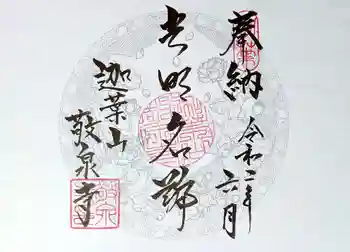 奉納 令和二年六月
光明名號
迦葉山
敬泉寺